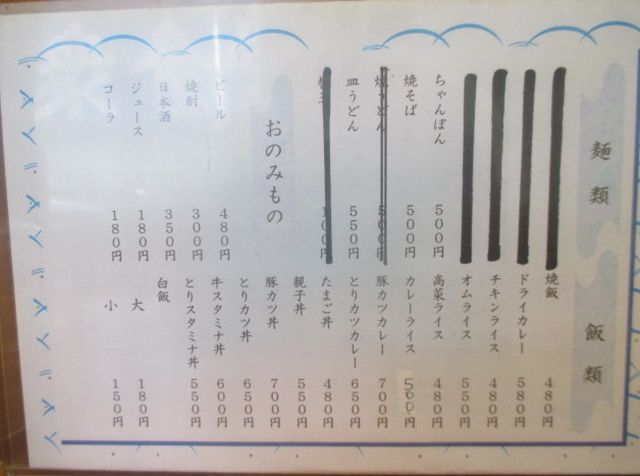 麺類
ちゃんぽん 500円
焼そば 500円
焼うどん 500円
皿うどん 550円
おのみもの
ビール 480円
焼酎 300円
日本酒 350円
ジュース 180円
コーラ 180円
飯類
焼飯 480円
ドライカレー 580円
チキンライス 480円
オムライス 550円
高菜ライス 480円
カレーライス 500円
豚カツカレー 700円
とりカツカレー 650円
たまご丼 480円
親子丼 550円
豚カツ丼 700円
とりカツ丼 650円
牛スタミナ丼 600円
とりスタミナ丼 550円
白飯
大 180円
小 150円